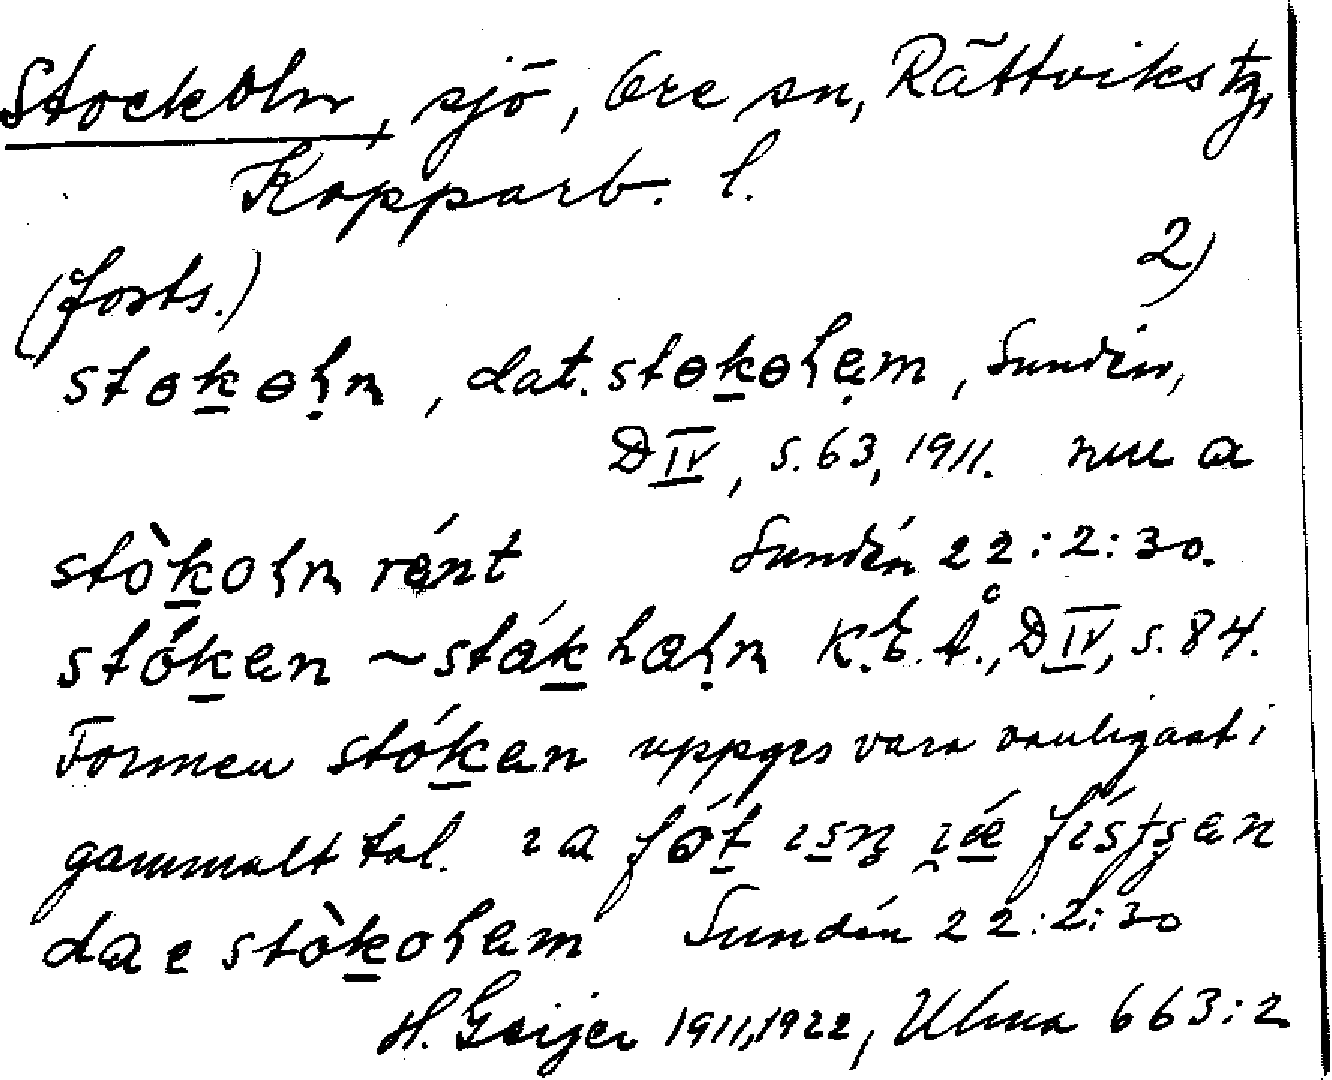 Stockoln, sjö, Ore sn, Rättviks tg,
Kopparb. l.
2)
(forts.)
stɵkɵl̥n, dat. stɵkɵlem, Sundén,
D IV, s. 63, 1911. nu a
stòkoln rént Sundén 22:2:30.
stóken ~ stákhaln K.E.Å., D IV, s. 84.
Formen stóken uppges vara vanligast i
gammalt tal. fɵ́t
da e stòkolem Sundén 22:2:30
H. Geijer 1911, 1922, Ulma 663:2